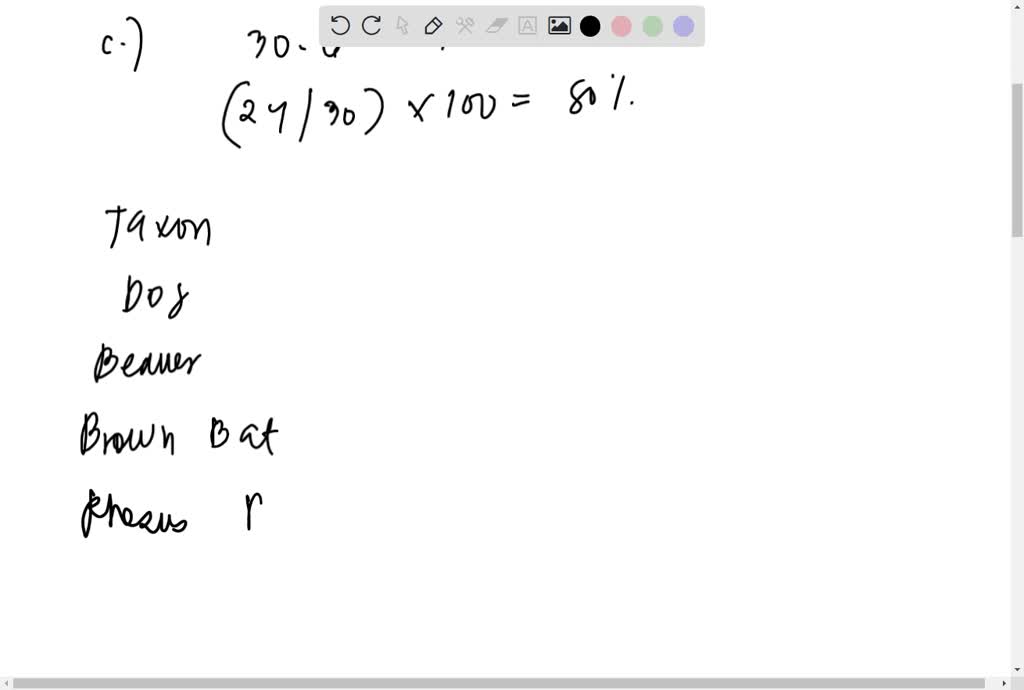 c.) 30.
(24/30) × 100 = 80%.
Taxon
Dog
Beaver
Brown Bat
Rhesus